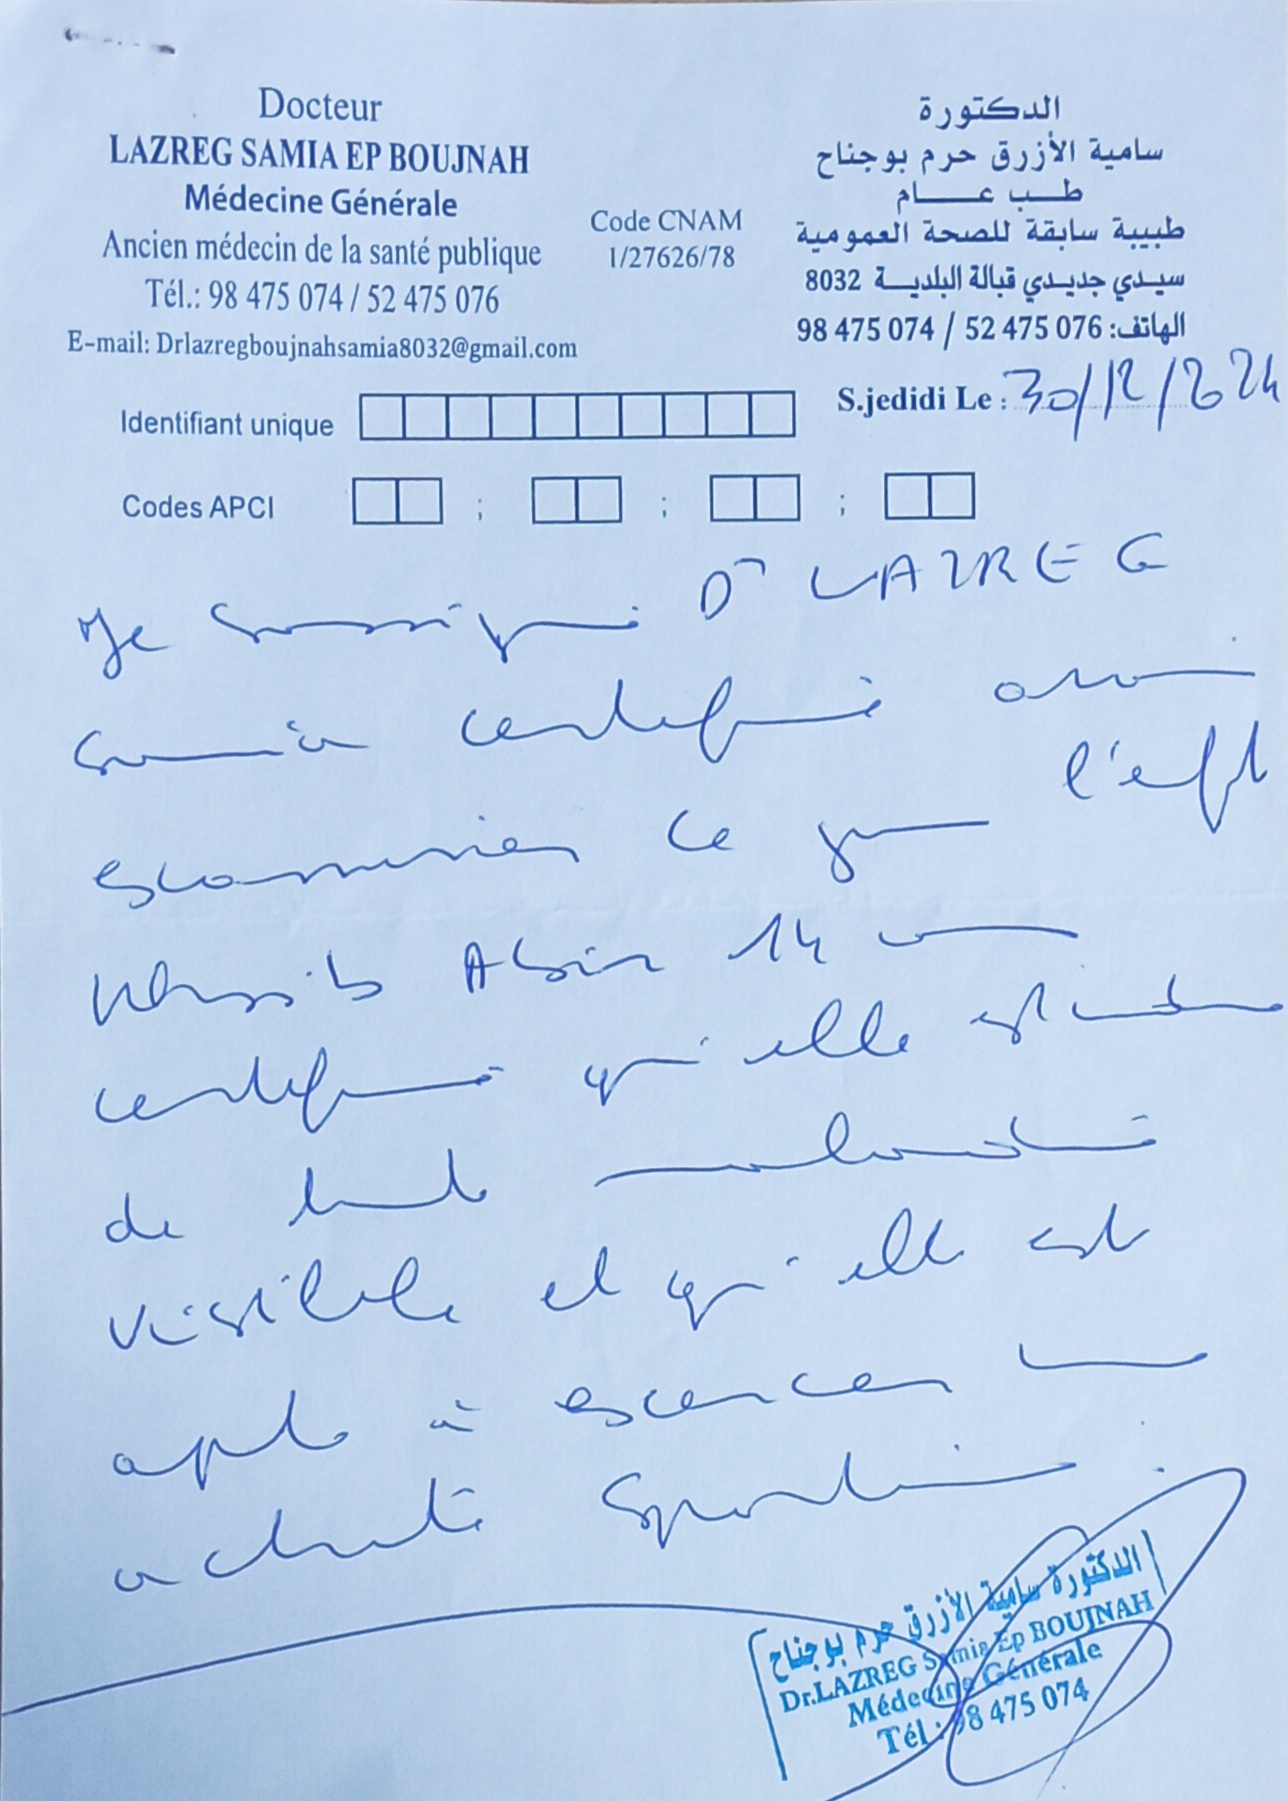 Docteur
LAZREG SAMIA EP BOUJNAH
Médecine Générale
Ancien médecin de la santé publique
Tél.: 98 475 074 / 52 475 076
E-mail: Drlazregboujnahsamia8032@gmail.com
Code CNAM
1/27626/78
الدكتورة
سامية الأزرق حرم بوجناح
طب عام
طبيبة سابقة للصحة العمومية
سيدي جديدي قبالة البلدية 8032
الهاتف: 98 475 074 / 52 475 076
S.jedidi Le : 30/12/2024
Identifiant unique
Codes APCI ; ; ;
Je soussigné Dr LAZREG
Samia certifie avoir
examiner ce jour l'eft
Abir 14 ans
certifie qu'elle est indemne
de toute maladie
visible et qu'elle est
apte à exercer une
activité sportive
الدكتورة سامية الأزرق حرم بوجناح
Dr.LAZREG Samia Ep BOUJNAH
Médecine Générale
Tél : 98 475 074